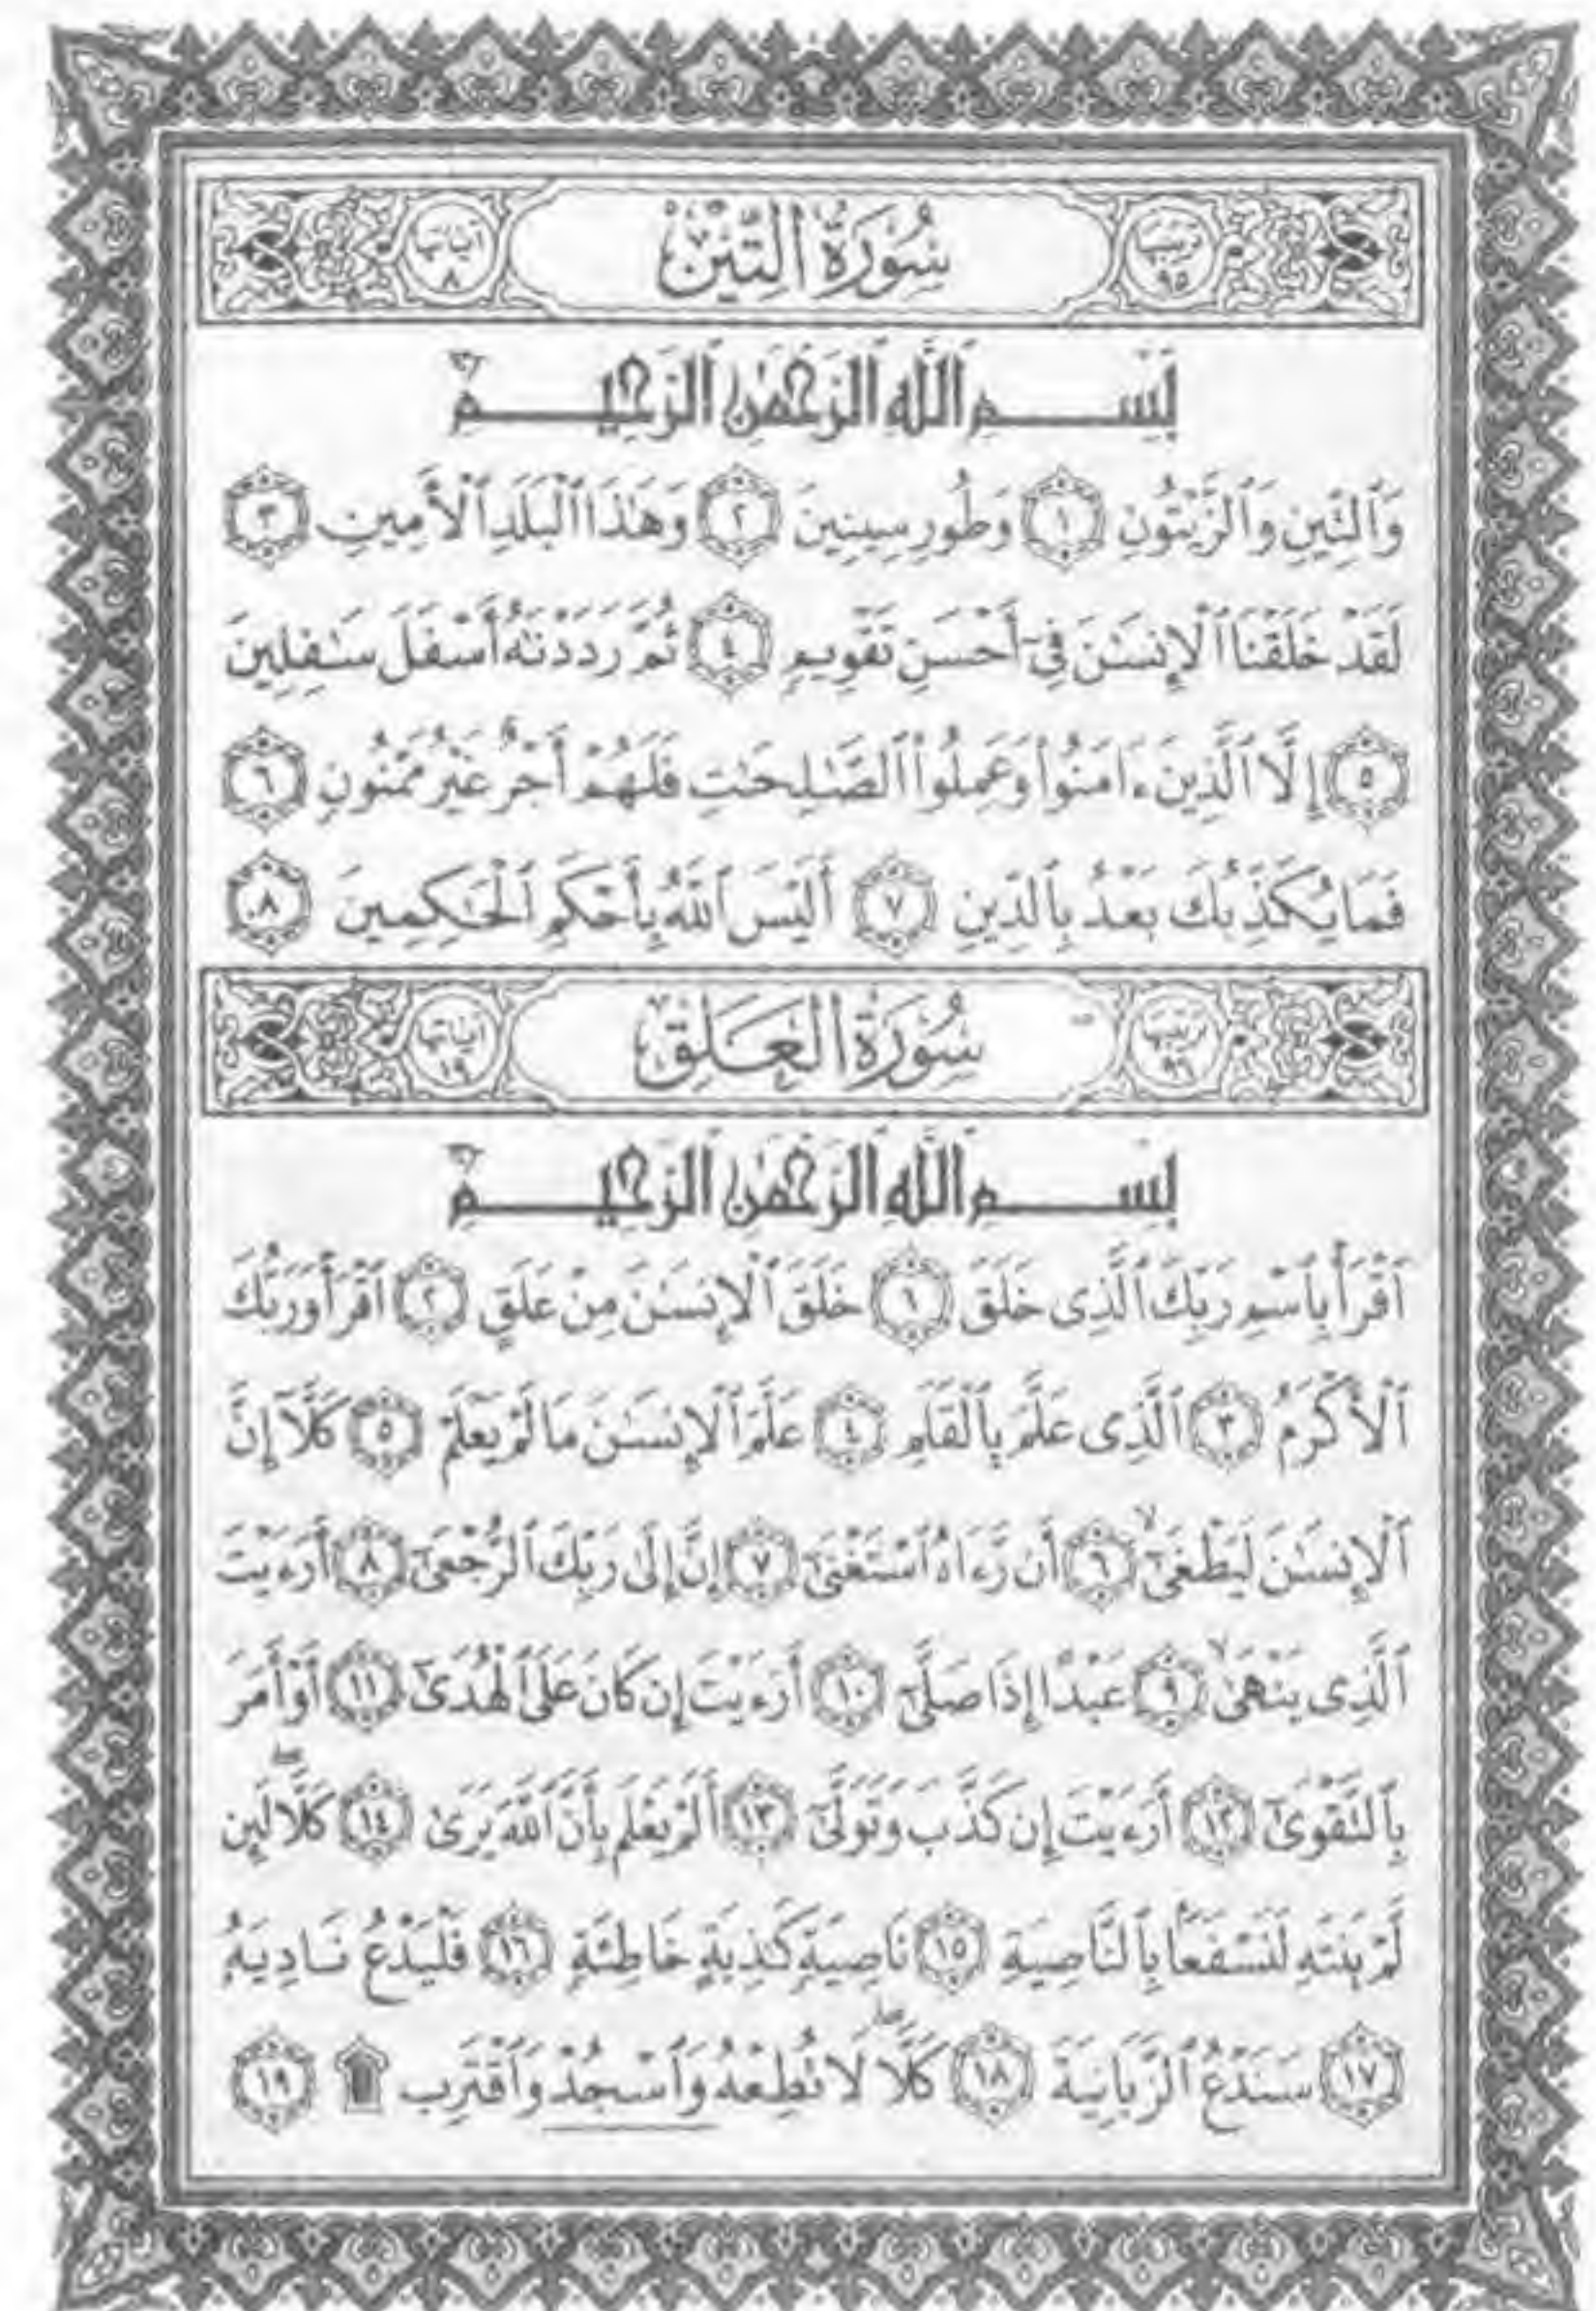 ترتيبها ٩٥ سُورَةُ التِّينِ آياتها ٨
بِسْمِ ٱللَّهِ ٱلرَّحْمَٰنِ ٱلرَّحِيمِ
وَٱلتِّينِ وَٱلزَّيْتُونِ ١ وَطُورِ سِينِينَ ٢ وَهَٰذَا ٱلْبَلَدِ ٱلْأَمِينِ ٣
لَقَدْ خَلَقْنَا ٱلْإِنسَٰنَ فِىٓ أَحْسَنِ تَقْوِيمٍ ٤ ثُمَّ رَدَدْنَٰهُ أَسْفَلَ سَٰفِلِينَ
٥ إِلَّا ٱلَّذِينَ ءَامَنُوا۟ وَعَمِلُوا۟ ٱلصَّٰلِحَٰتِ فَلَهُمْ أَجْرٌ غَيْرُ مَمْنُونٍ ٦
فَمَا يُكَذِّبُكَ بَعْدُ بِٱلدِّينِ ٧ أَلَيْسَ ٱللَّهُ بِأَحْكَمِ ٱلْحَٰكِمِينَ ٨
ترتيبها ٩٦ سُورَةُ العَلَقِ آياتها ١٩
بِسْمِ ٱللَّهِ ٱلرَّحْمَٰنِ ٱلرَّحِيمِ
ٱقْرَأْ بِٱسْمِ رَبِّكَ ٱلَّذِى خَلَقَ ١ خَلَقَ ٱلْإِنسَٰنَ مِنْ عَلَقٍ ٢ ٱقْرَأْ وَرَبُّكَ
ٱلْأَكْرَمُ ٣ ٱلَّذِى عَلَّمَ بِٱلْقَلَمِ ٤ عَلَّمَ ٱلْإِنسَٰنَ مَا لَمْ يَعْلَمْ ٥ كَلَّآ إِنَّ
ٱلْإِنسَٰنَ لَيَطْغَىٰٓ ٦ أَن رَّءَاهُ ٱسْتَغْنَىٰٓ ٧ إِنَّ إِلَىٰ رَبِّكَ ٱلرُّجْعَىٰٓ ٨ أَرَءَيْتَ
ٱلَّذِى يَنْهَىٰ ٩ عَبْدًا إِذَا صَلَّىٰٓ ١٠ أَرَءَيْتَ إِن كَانَ عَلَى ٱلْهُدَىٰٓ ١١ أَوْ أَمَرَ
بِٱلتَّقْوَىٰٓ ١٢ أَرَءَيْتَ إِن كَذَّبَ وَتَوَلَّىٰٓ ١٣ أَلَمْ يَعْلَم بِأَنَّ ٱللَّهَ يَرَىٰ ١٤ كَلَّا لَئِن
لَّمْ يَنتَهِ لَنَسْفَعًۢا بِٱلنَّاصِيَةِ ١٥ نَاصِيَةٍ كَٰذِبَةٍ خَاطِئَةٍ ١٦ فَلْيَدْعُ نَادِيَهُۥ
١٧ سَنَدْعُ ٱلزَّبَانِيَةَ ١٨ كَلَّا لَا تُطِعْهُ وَٱسْجُدْ وَٱقْتَرِب ۩ ١٩